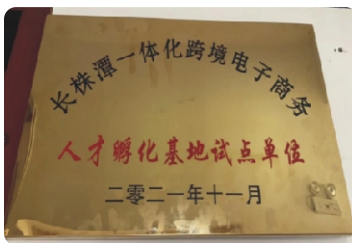 长株潭一体化跨境电子商务
人才孵化基地试点单位
二零二一年十一月